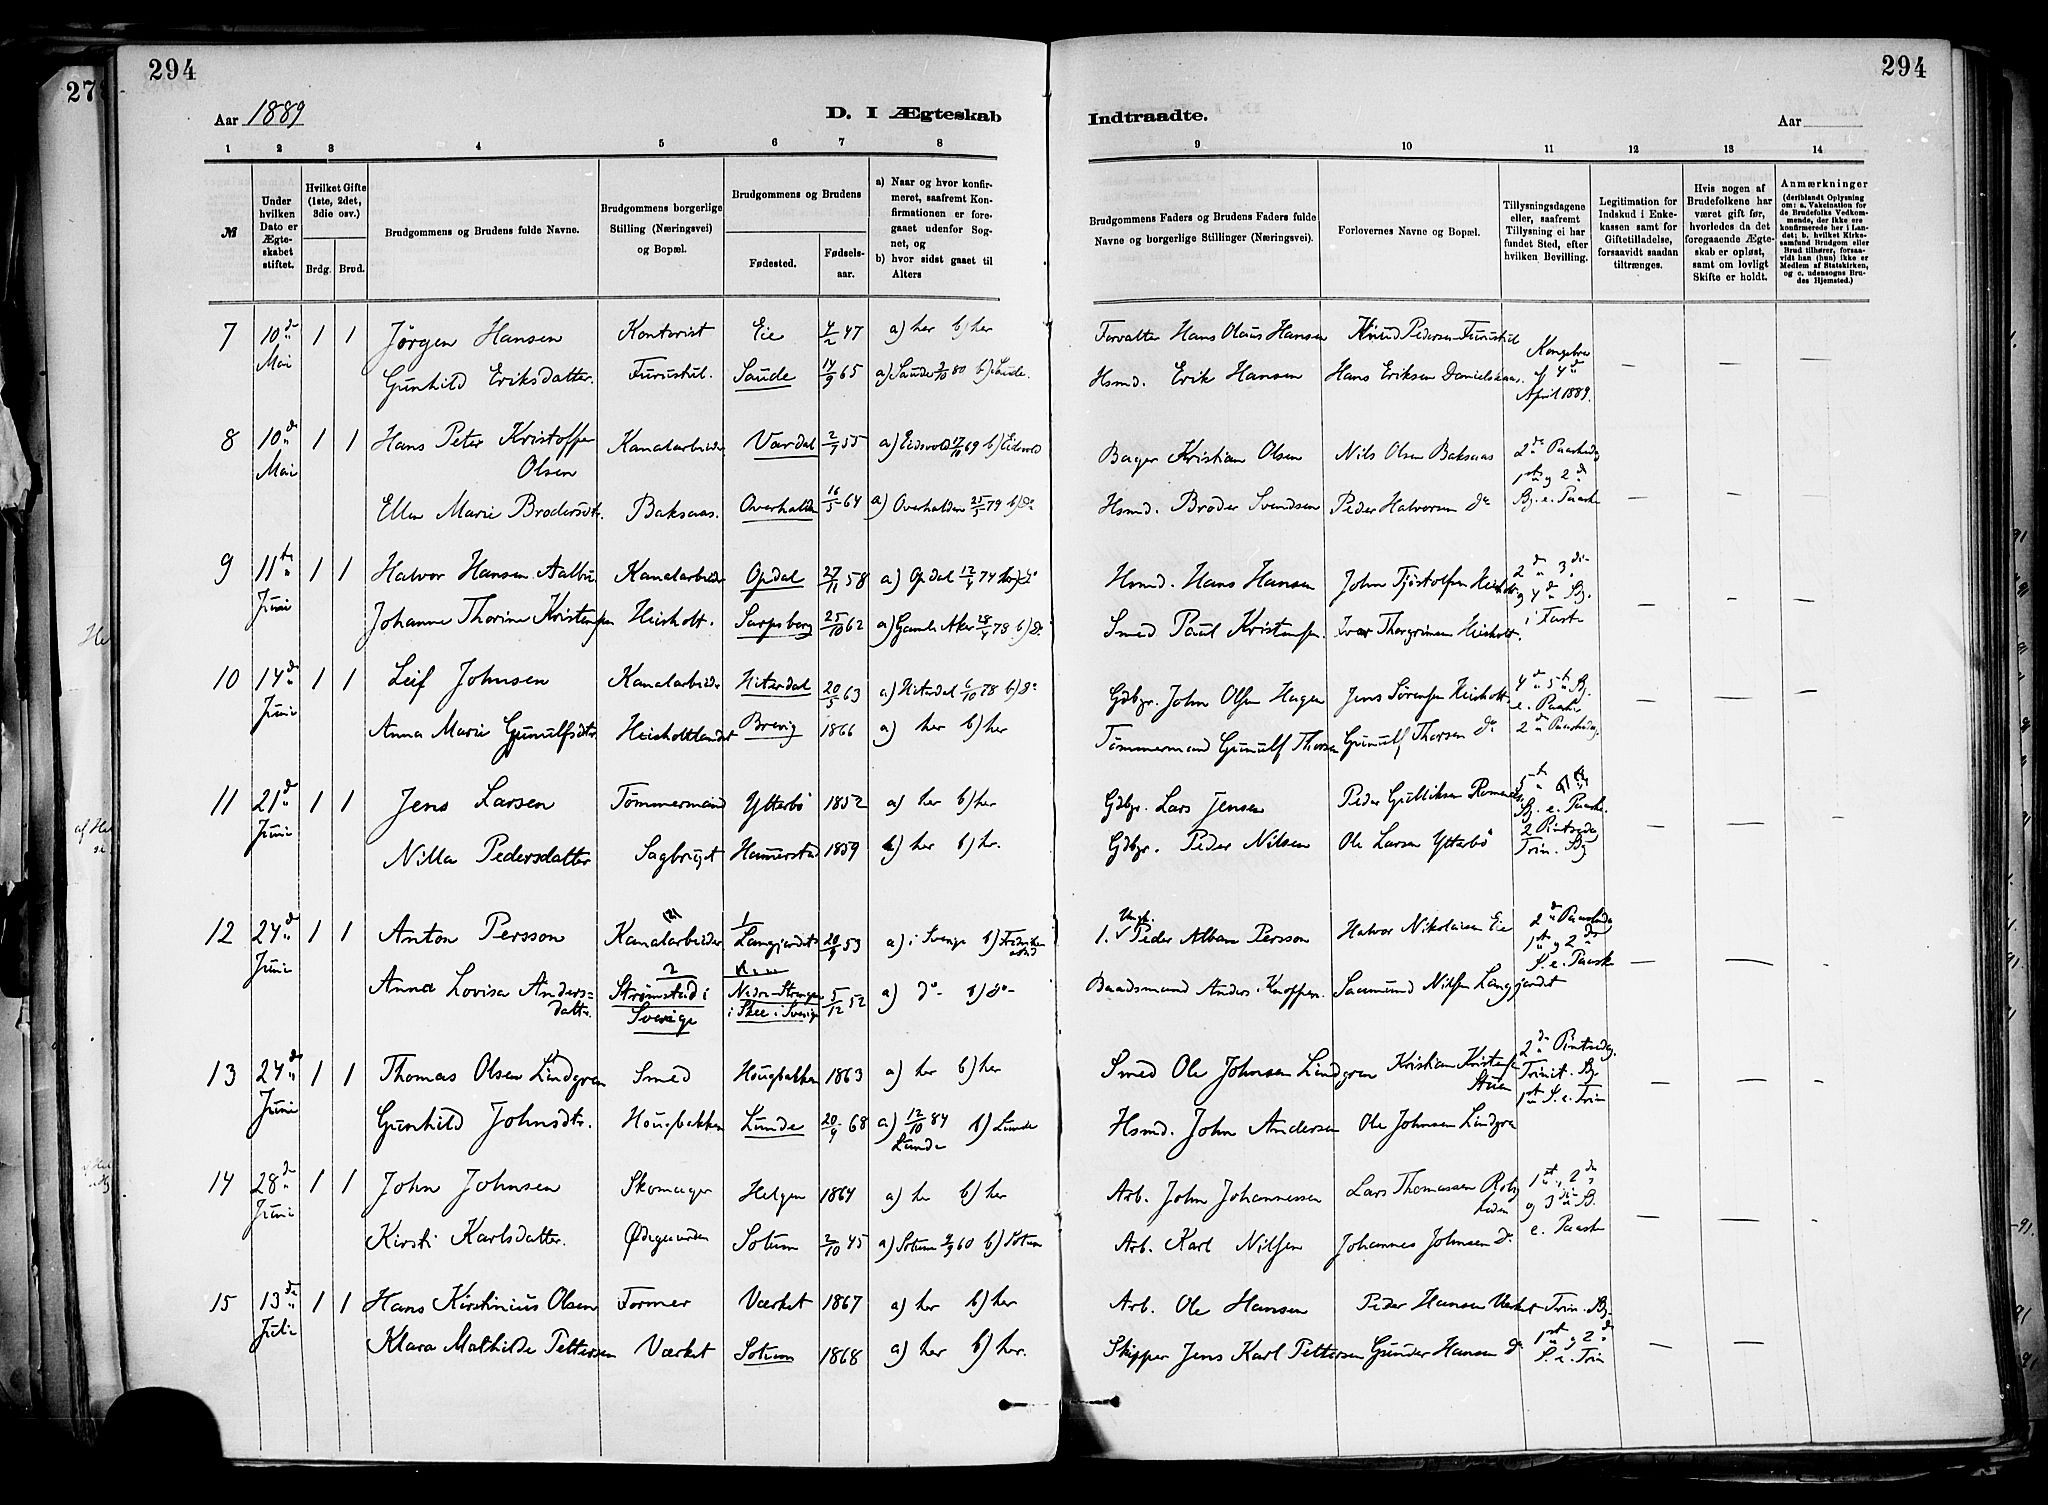 294
294
Aar 1889
D. I Ægteskab
Indtraadte.
Aar
1 2 3 4 5 6 7 8 9 10 11 12 13 14
№
Under hvilken Dato er Ægteskabet stiftet.
Hvilket Gifte (1ste, 2det, 3die osv.)
Brdg. Brud.
Brudgommens og Brudens fulde Navne.
Brudgommens borgerlige Stilling (Næringsvei) og Bopæl.
Brudgommens og Brudens
Fødested.
Fødselsaar.
a) Naar og hvor konfirmeret, saafremt Konfirmationen er foregaaet udenfor Sognet, og
b) hvor sidst gaaet til Alters
Brudgommens Faders og Brudens Faders fulde Navne og borgerlige Stillinger (Næringsvei).
Forlovernes Navne og Bopæl.
Tillysningsdagene eller, saafremt Tillysning ei har fundet Sted, efter hvilken Bevilling.
Legitimation for Indskud i Enkekassen samt for Giftetilladelse, forsaavidt saadan tiltrænges.
Hvis nogen af Brudefolkene har været gift før, hvorledes da det foregaaende Ægteskab er opløst, samt om lovligt Skifte er holdt.
Anmærkninger
(deriblandt Oplysning om: a. Vakcination for de Brudefolks Vedkommende, der ikke ere konfirmerede her i Landet; b. hvilket Kirkesamfund Brudgom eller Brud tilhører, forsaavidt han (hun) ikke er Medlem af Statskirken, og c. udensogns Brudes Hjemsted.)
7 10de Mai 1 1 Jørgen Hansen Kontorist Eie 4/2 47 a) her b) her Forvalter Hans Olaus Hansen Knud Pedersen Furustul Kongebrev
Gunhild Eriksdatter. Furustul. Saude 14/9 65 a) Saude 3/10 80 b) Saude. Hsmd. Erik Hansen Hans Eriksen af 4de April 1889. — — —
8 10de Mai 1 1 Hans Peter Kristoffer Olsen Kanalarbeider Værdal 2/7 55 a) Eidsvold 69 b) Eidsvold Bager Kristian Olsen Nils Olsen Baksaas 2de Paaskedag 1ste og 2de
Ellen Marie Brodersdtr. Baksaas. Overhalden 16/5 64 a) Overhalden 25/5 79 b) do Hsmd. Broder Svendsen Peder Halvorsen do S. e. Paaske — — —
9 11te Juni 1 1 Halvor Hansen Aalbu Kanalarbeider Opdal 27/11 58 a) Opdal 12/7 74 b) do Hsmd. Hans Hansen John Tjøstolfsen Heisholt 2de 3die og 4de S.
Johanne Thorine Kristensen Heisholt. Sarpsborg 25/10 62 a) Gamle Aker 28/4 78 b) do Smed Paul Kristensen. Ivar Thorgrimsen Heisholt. i Faste — — —
10 14de Juni 1 1 Leif Johnsen Kanalarbeider Hiterdal 20/5 63 a) Hiterdal 6/10 78 b) do Gdbgr. John Olsen Hagen Jens Sørensen Heisholt 4de 5te S. e. Paaske
Anna Marie Gunulfsdtr. Heisholtlandet Brevig 1866 a) her b) her Tømmermand Gunulf Thorsen Gunulf Thorsen do 2de Paaskedag. — — —
11 21de Juni 1 1 Jens Larsen Tømmermand Ytterbø 1852 a) her b) her Gdbgr. Lars Jensen Peder Gulliksen 5te S. e. Paaske.
Nilla Pedersdatter Sagbruget 1859 a) her b) her. Gdbgr. Peder Nilsen Ole Larsen Ytterbø 2 Pintsedag Trin. S. — — —
12 24de Juni 1 1 Anton Persson Kanalarbeider Langjordet 20/9 53 a) i Sverige b) 1. Ungk. Peder Alban Persson Halvor Nikolaisen Eie 2de Paaskedag 1ste og 2de
Anna Lovisa Andersdatter. Strømstad i Sverige i Skee i Sverige 5/12 52 a) do b) do Baadsmand Anders Saamund Nilsen Langjordet S. e. Paaske — — —
13 24de Juni 1 1 Thomas Olsen Lindgren Smed Hougbakken 1863 a) her b) her Smed Ole Johnsen Lindgren Kristian Kristensen 2de Pintsedag. Trinit. S.
Gunhild Johnsdtr. Hougbakken Lunde 20/9 68 a) 12/10 84 Lunde b) Lunde Hsmd. John Andersen Ole Johnsen Lindgren 1ste S. e. Trin — — —
14 28de Juni 1 1 John Johnsen Skomager Helgen 1864 a) her b) her Arb. John Johannessen Lars Thomassen 1ste, 2de og 3die S.
Kirsti Karlsdatter. Ødegaarden Solum 2/10 45 a) Solum 9/9 60 b) Solum Arb. Karl Nilsen Johannes Johnsen do e. Paaske — —
15 13de Juli 1 1 Hans Kirstinius Olsen Former Værket 1867 a) her b) her Arb. Ole Hansen Peder Hansen Værket Trin. S.
Klara Mathilde Pettersen Værket Solum 1868 a) her b) her. Skipper Jens Karl Pettersen Gunder Hansen do 1ste og 2de S. e. Trin — —